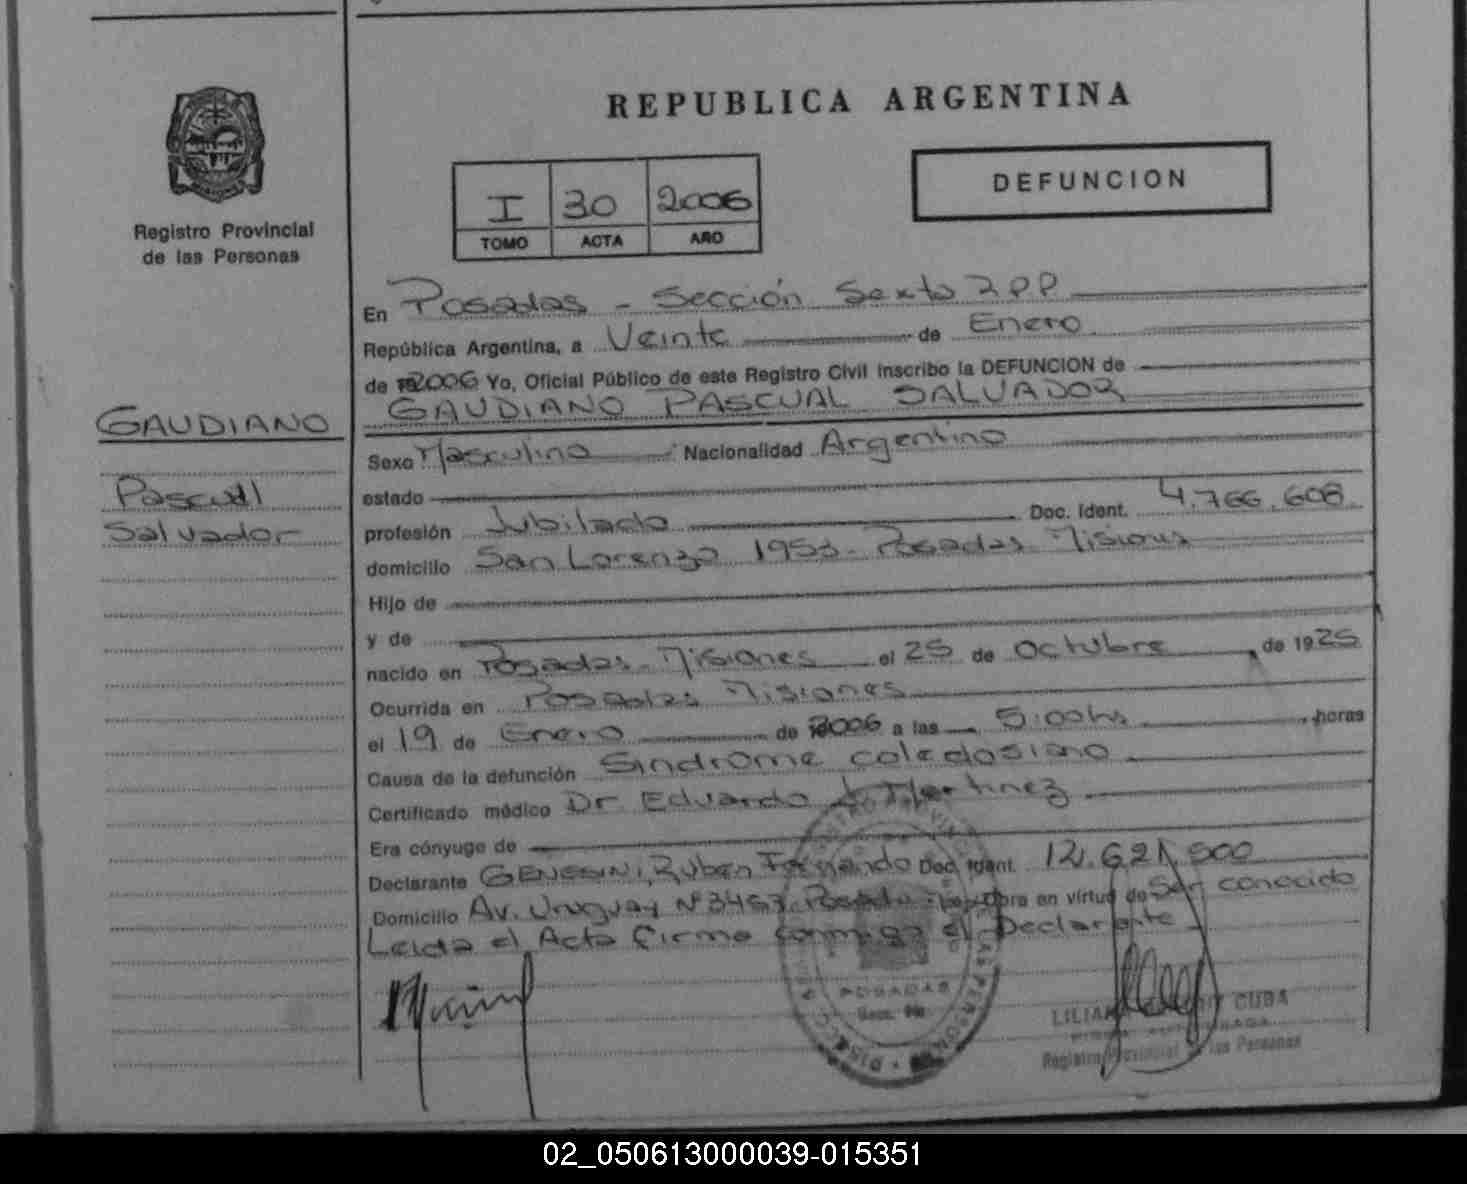 REPUBLICA ARGENTINA
DEFUNCION
I 30 2006
TOMO ACTA AÑO
Registro Provincial
de las Personas
GAUDIANO
Pascual
Salvador
En Posadas - Sección Sexta RPP
República Argentina, a Veinte de Enero
de 2006 Yo, Oficial Público de este Registro Civil inscribo la DEFUNCION de
GAUDIANO PASCUAL SALVADOR
Sexo Masculino Nacionalidad Argentino
estado
profesión Jubilado Doc. Ident. 4.766.608
domicilio San Lorenzo 1953 - Posadas Misiones
Hijo de
y de
nacido en Posadas - Misiones el 25 de Octubre de 1925
Ocurrida en Posadas Misiones
el 19 de Enero de 2006 a las 5:00 hs horas
Causa de la defunción Sindrome coledosiano
Certificado médico Dr. Eduardo Martinez
Era cónyuge de
Declarante Ruben Fernando Doc. Ident. 12.621.500
Domicilio Av. Uruguay Nº 3453 Posadas obra en virtud de Ser conocido
Leida el Acta firma conmigo el Declarante
POSADAS
Secc.
LILIANA CUBA
Registro Provincial de las Personas
02_050613000039-015351